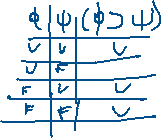 ϕ | ψ | (ϕ ⊃ ψ)
V | V | V
V | F |
F | V | V
F | F | V